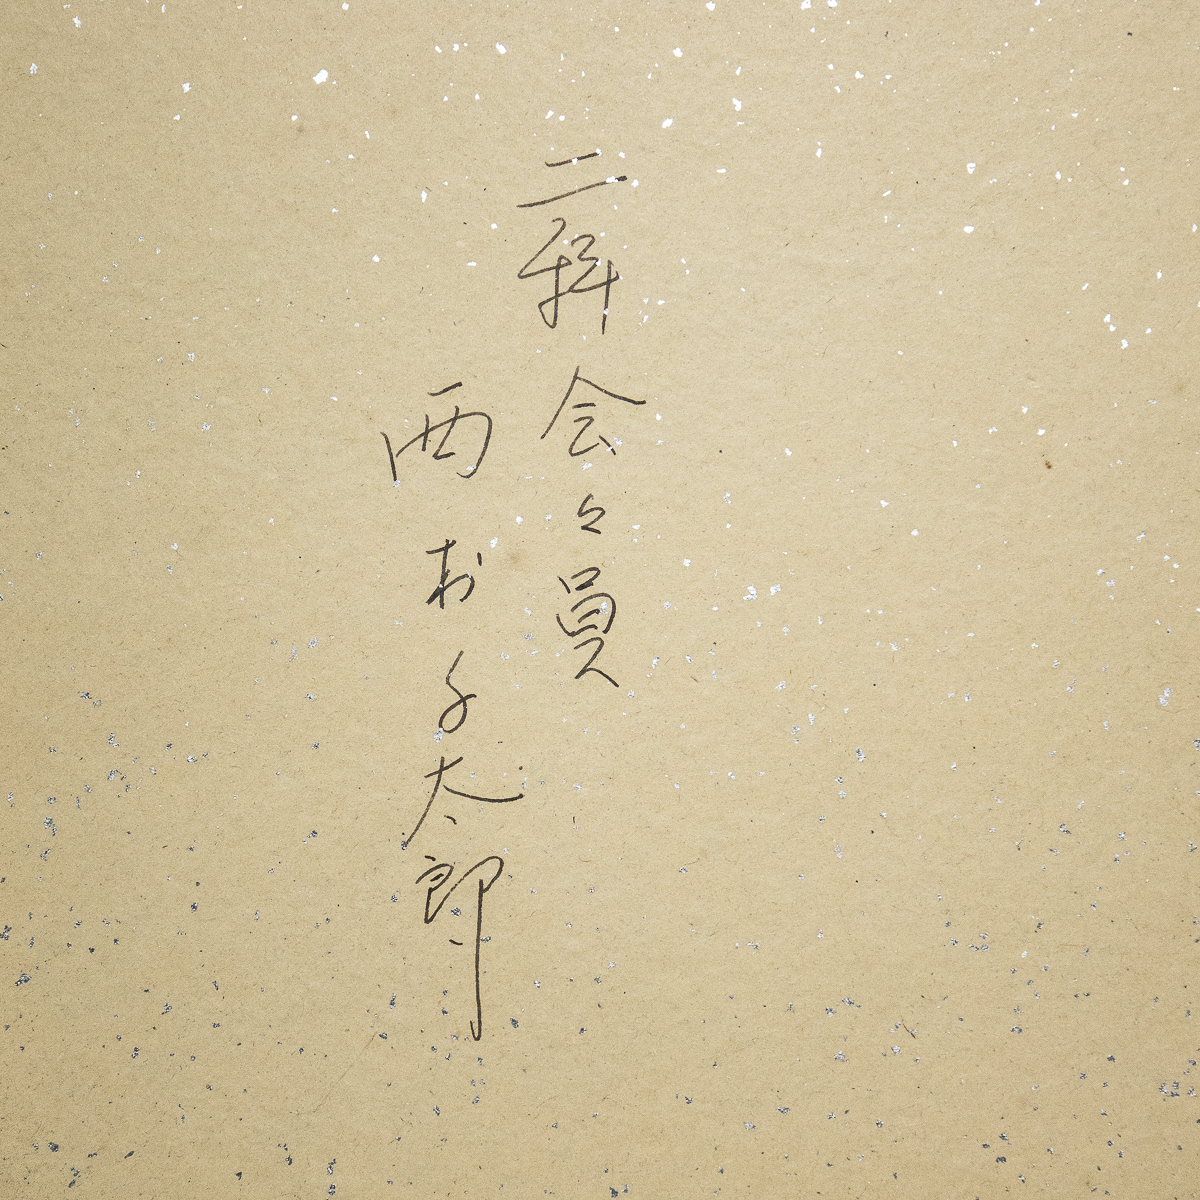 二科会々員
西村千太郎